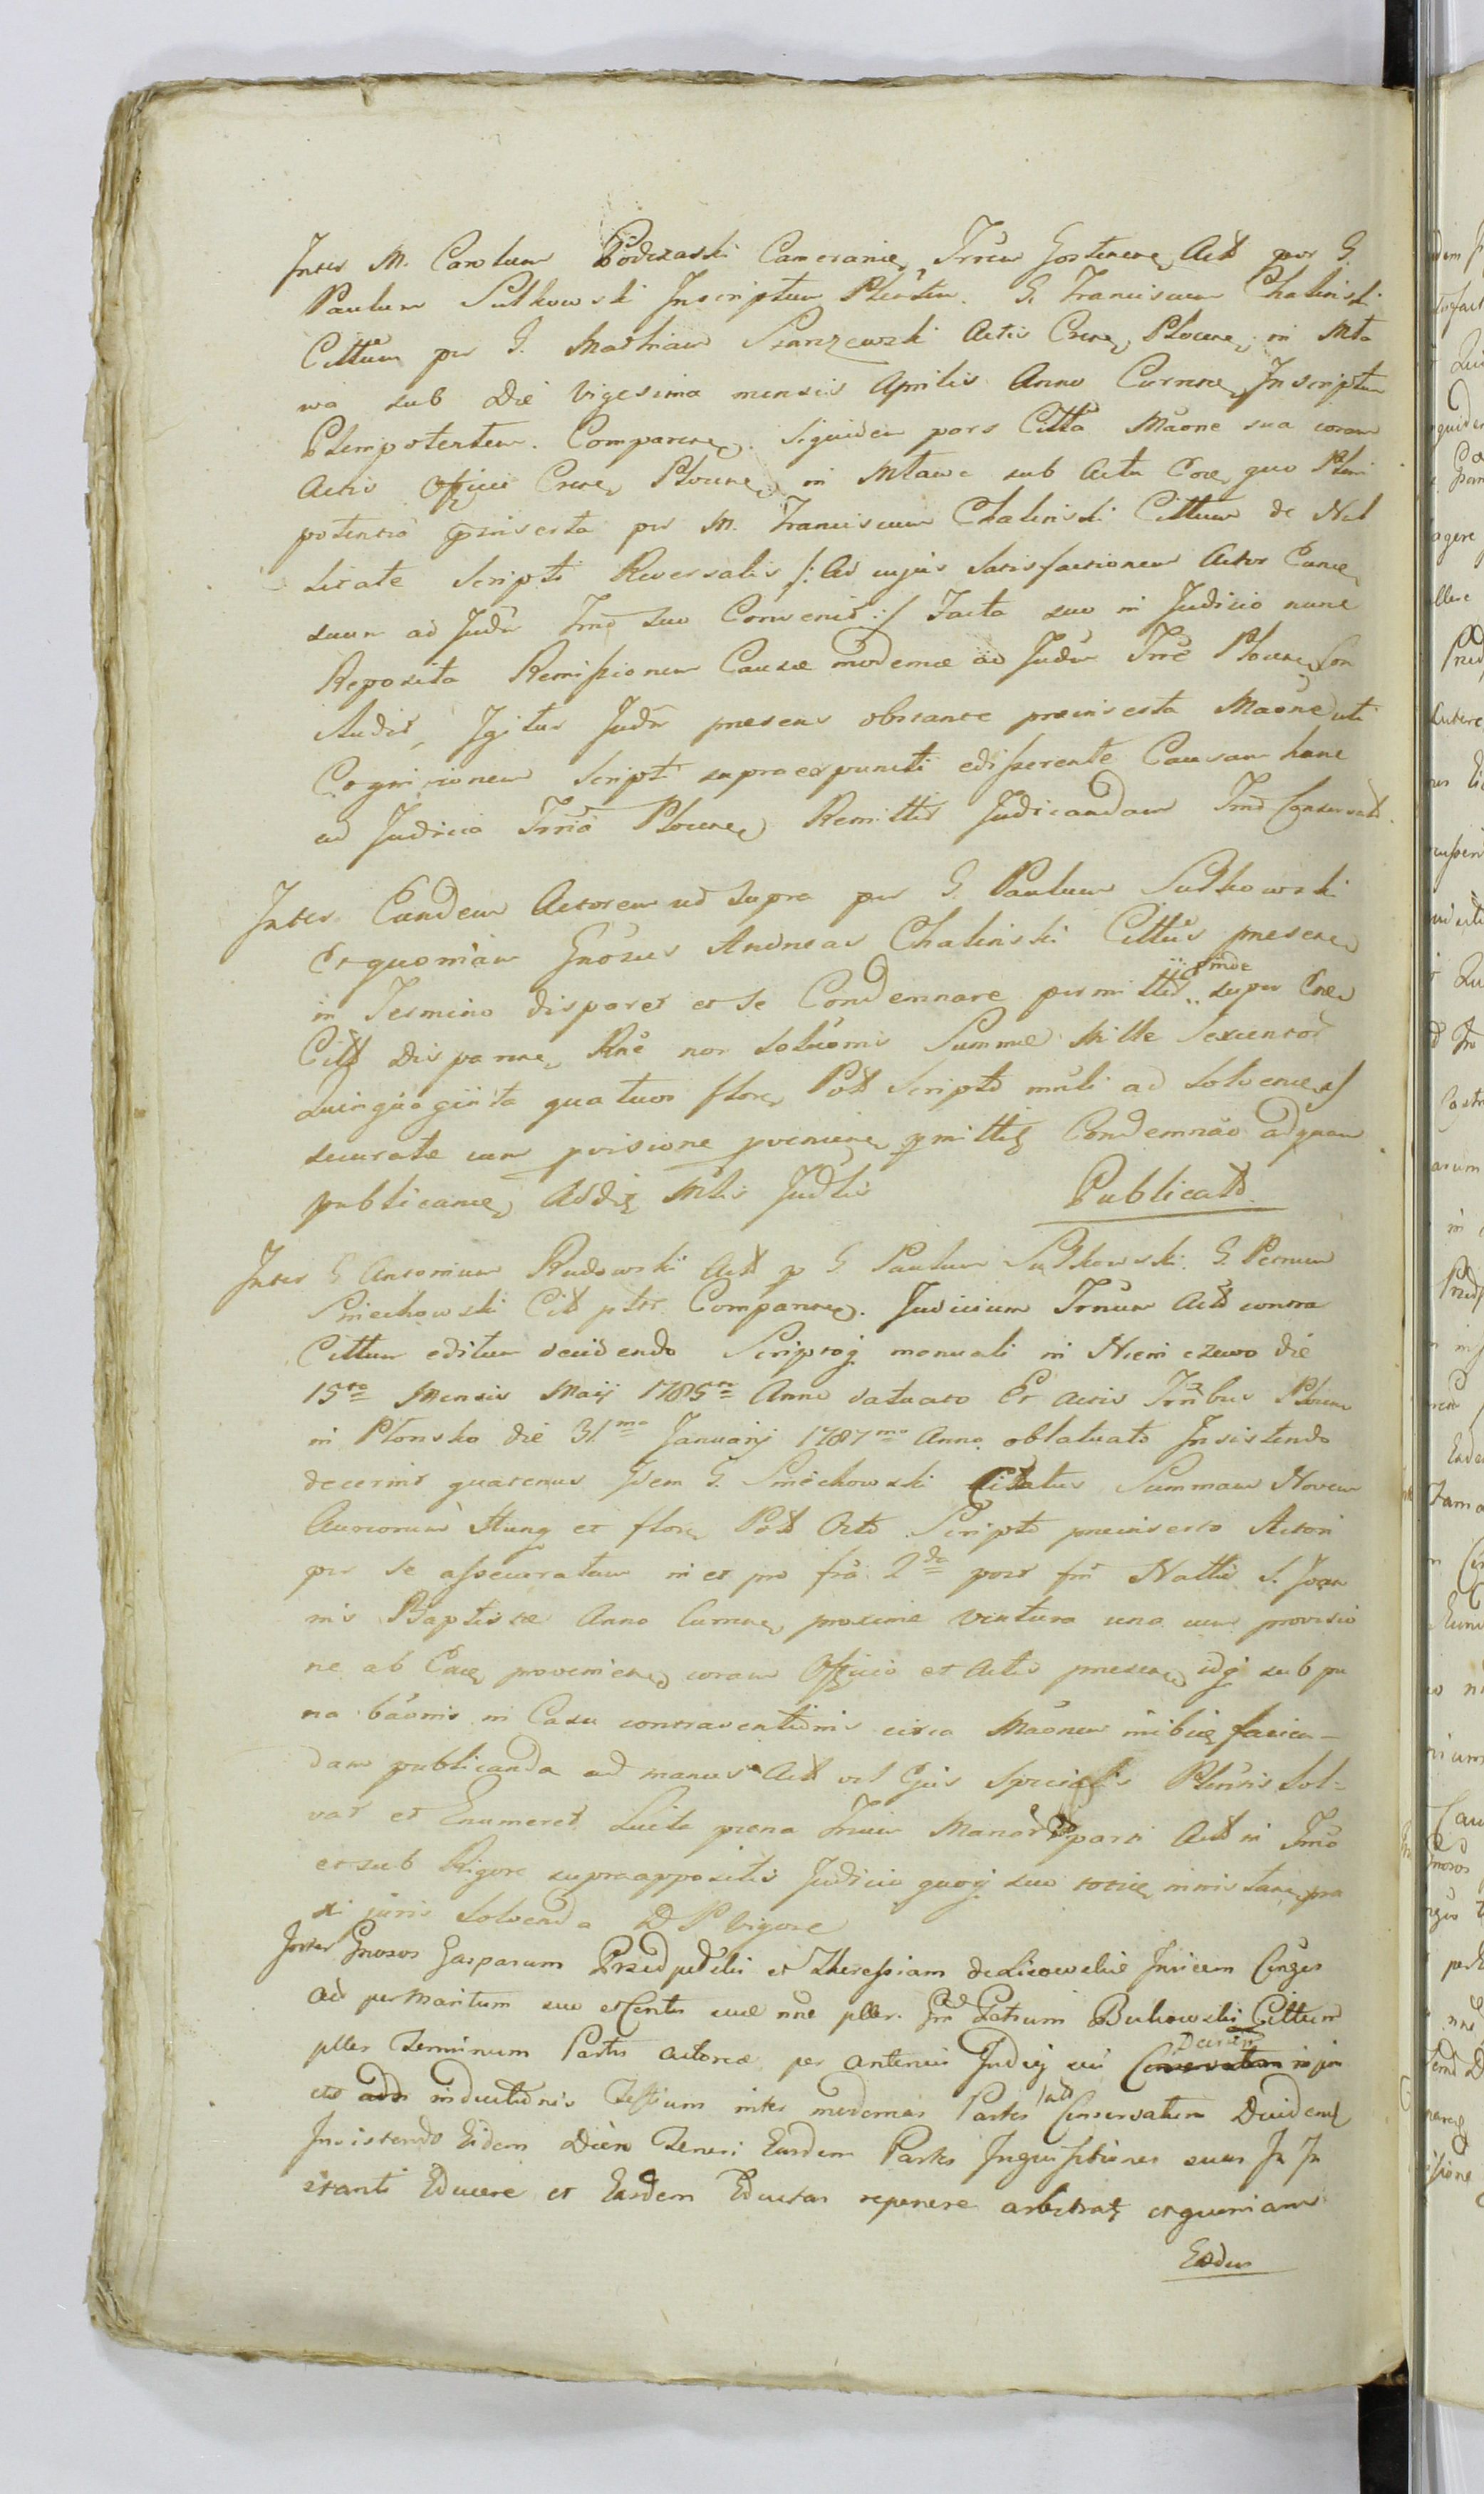 Inter M. Carolum Podczaski Camerarie, Trreu Gostenen, Actt per G.
Paulum Sutkowski Inscriptum Plentem. G. Franciscum Chalinski
Cittum per G. Mathiam Actis Cren, Plocen, in Mla
wa sub Die Vigesima mensis Aprilis Anno Curren, Inscriptum
Plenipotentem. Comparen. Siquidem pars Citta Maone sua coram
Actis Officii Cren, Plocen, in Mlawa sub Actu Cozo quo Pleni
potentia preinserta per M. Franciscum Chalinski Cittum de Nul
litate Scripti Reversalis /: Ad cujus Satisfactionem Actor Cane,
suum ad Judm Trnd suo Convenit :/ Facta suo in Judicio nunc
Reposita Remissionem Causæ modernæ ad Judm Trre Plocen, Con
studit, Igitur Judm presens obstante preinserta Maone uti
Cognicionem Scripti supraexpuncti edisserente Causam hanc
ad Judicia Trria Plocen, Remittit Judicandam Trnd Conservato.
Inter Eundem Actorem ut Supra per G. Paulum Sutkowski
Et quoniam Gnosus Andreas Chalinski Cittus presen,
in Termino disparet et se Condemnare permittit super Cne,
Citt Disparen, Rne non Soluonis Summæ Mille Sexcentor
Quinquaginta quatuor flore, Pott Scripto mnli ad Solvene,
securate cum prisione provenien, pmittit Condemnao ad quam
publicane, Addit Mtis Judtis Publicatd.
Inter G Antonium Rudowski Actt p G Paulum Sutkowski. G. Petrum
Smiechowski Citt pltr. Comparen. Judicium Trnum Actt contra
Cittum editum decidendo Scriptoq manuali in Niemiczewo die
15ta Mensis Maij 1785to Anno datuato Et Actis Trribus Plocen
in Plonsko die 31ma Januarij 1787mo Anno oblatuato Insistendo
decernit quatenus Idem G. Smiechowski Citatus Summam Novem
Aureorum Hung et flore, Pott Octo Scripto preinserto Actori
per se assecuratam in et pro fra 2da post fm Nattis S. Joan
nis Baptistæ Anno Curren, proxime ventura una cum provisio
ne ab Eace, provenien, coram Officio et Actis presen, idq sub pæ
na baonis in Casu contraventionis circa Maonem inibiq facien-
dam publicanda ad manus Actt vel Ejus Specialis Plentis Sol-
vat et Enumeret Luita pæna Trium Marcar parti Actt in Trno
et sub Rigore supraappositis Judicio quoq suo toties instane, præ
si juris Solvenda D P Vigore
Inter Gnosos Gasparum et Theressiam de Invicem Conges
Act per Maritum suo et Contis suæ nne pller. Gm Petrum Bukowski Cittum
pller Terminum Partis actoreæ per anterius Judicij sui Conservatum in
cto inductionis Testium inter modernas Partes Conservatum Dividend
Insistendo Eidem Diem Teneri Easdem Partes Inquisitiones suas In In
stanti Educere et Easdem Eductas reponere arbitrat, et quoniam
Eædem